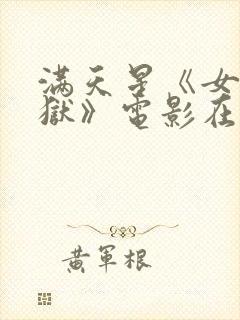 满天星《女
獄》电影在
黄軍根